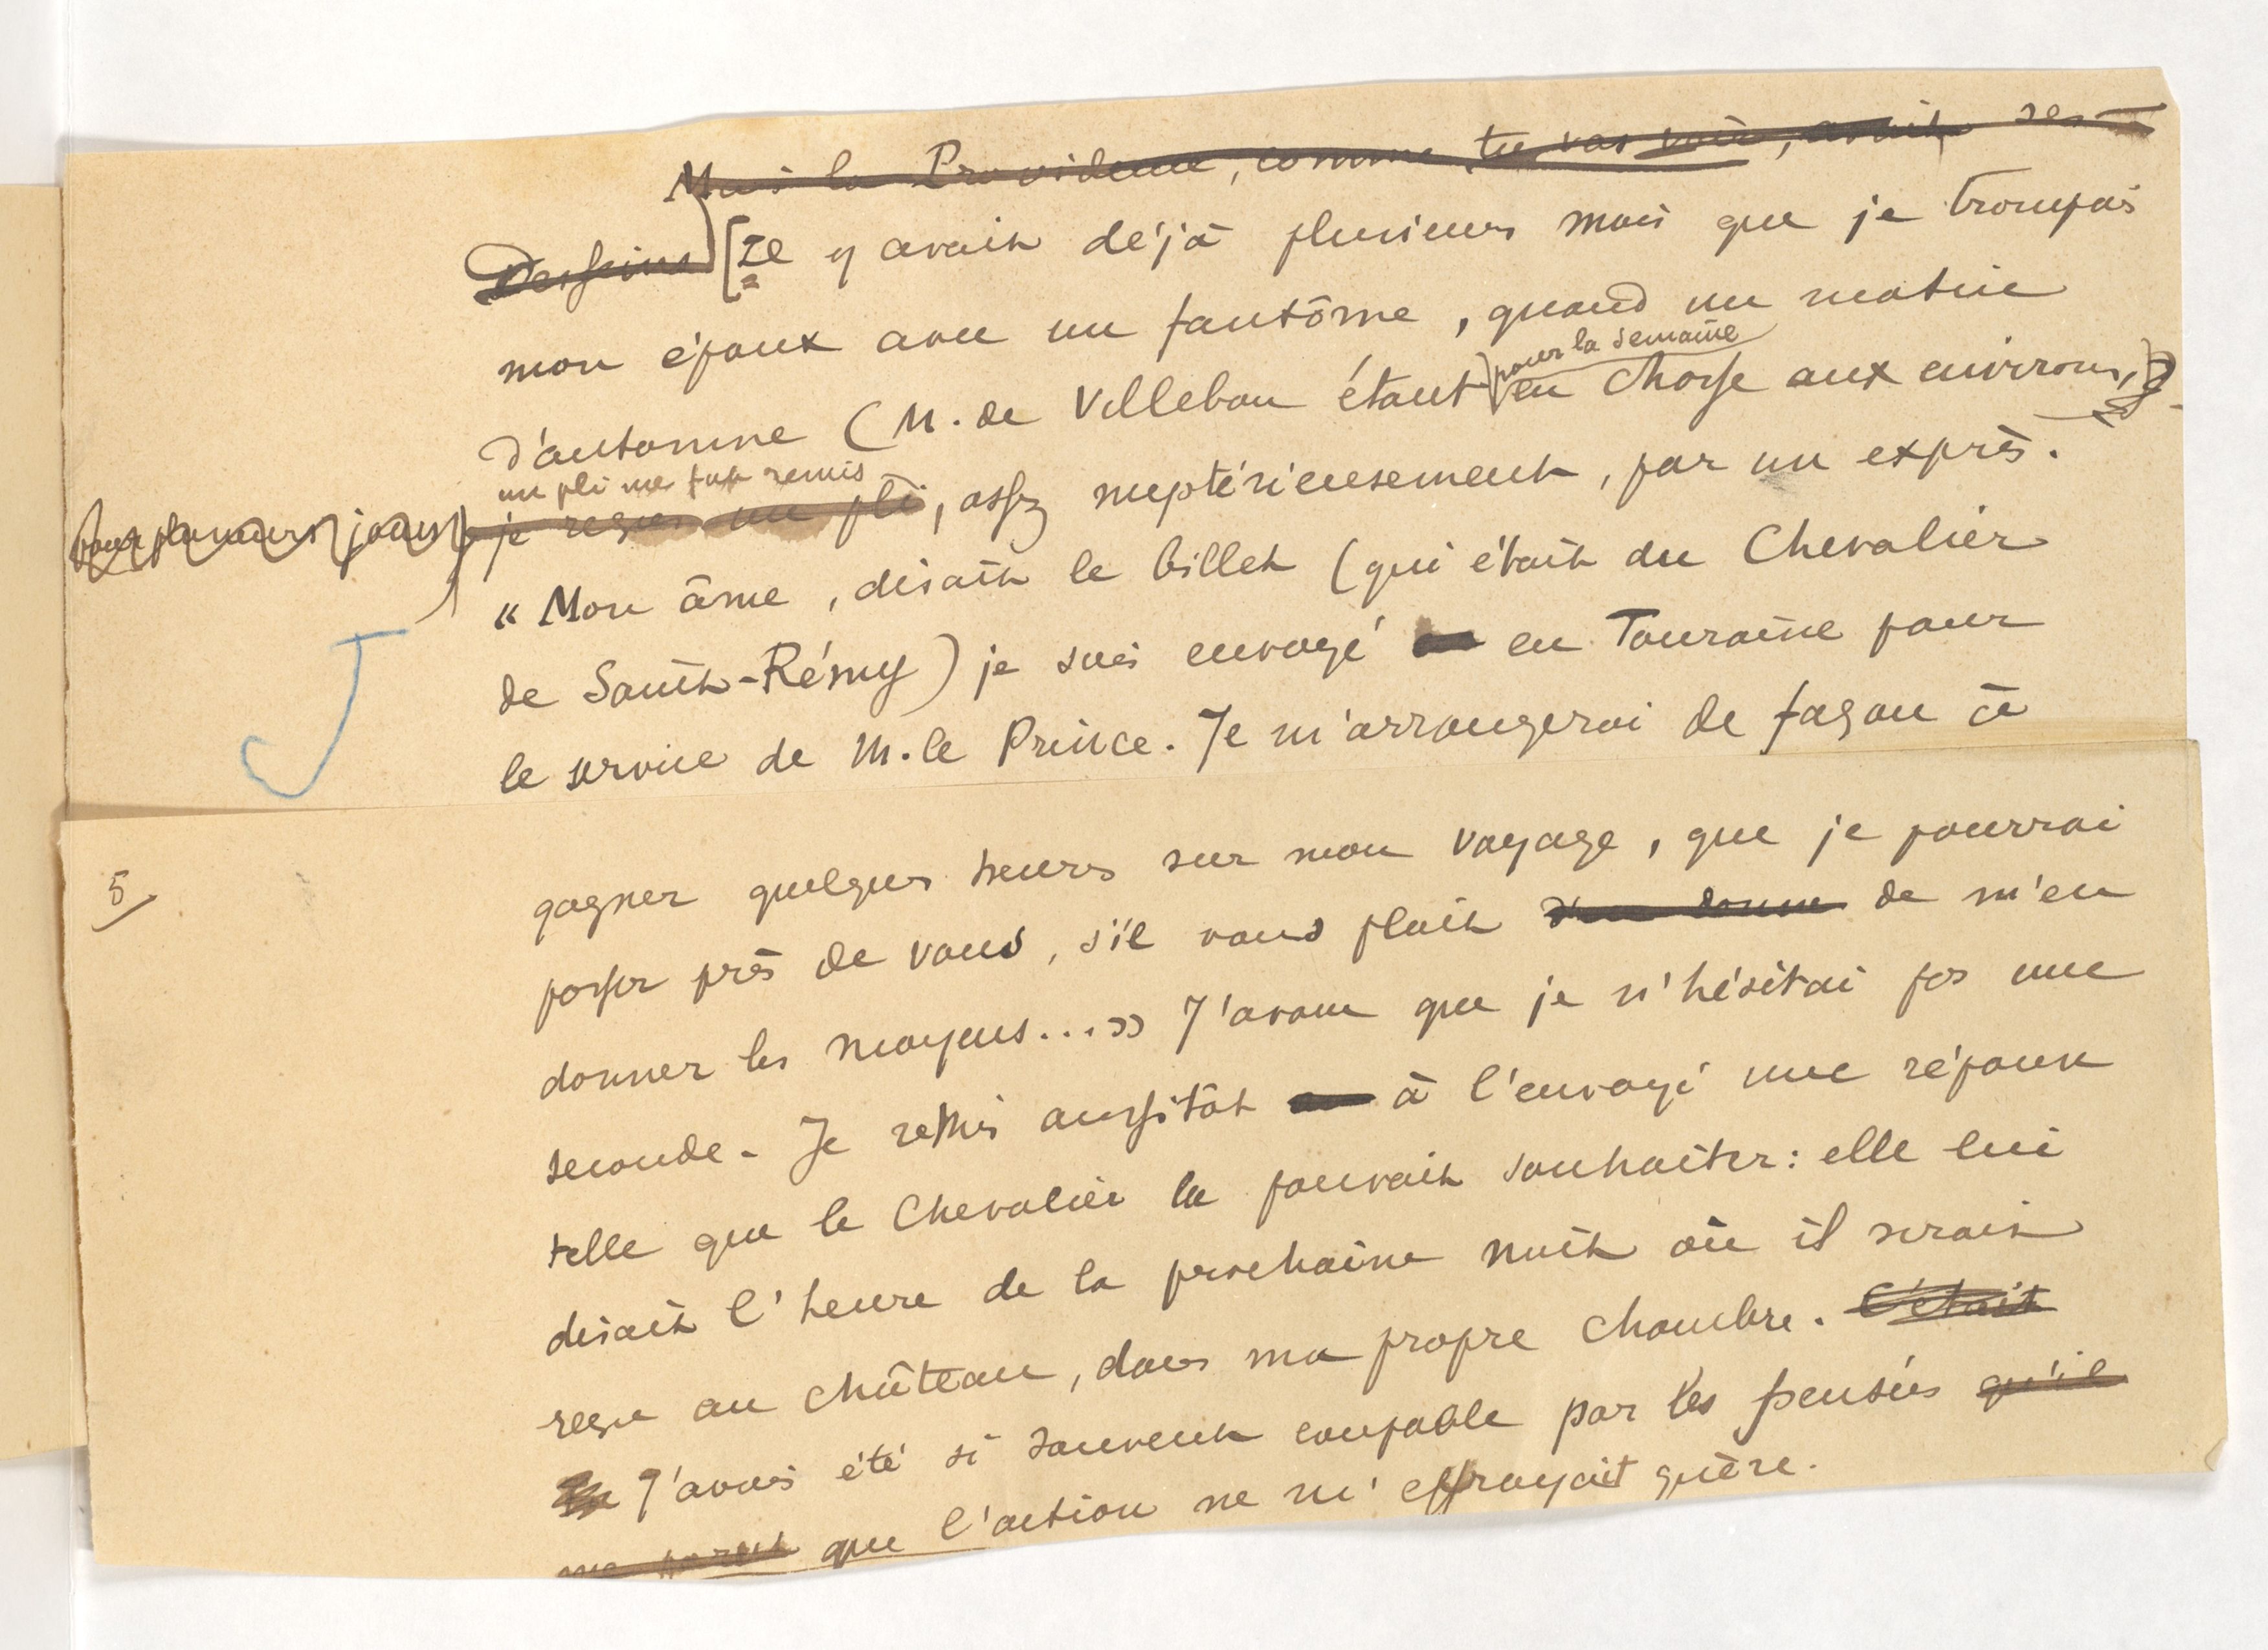 Mais la Providence, comme tu vas voir, avait ses
Desseins [Il y avait déjà plusieurs mois que je trompais
mon époux avec un fantôme, quand un matin
pour la semaine
d'automne (M. de Villebon étant en chasse aux environs,)
un pli me fut remis
pour plusieurs jours) je reçus un pli, assez mystérieusement, par un exprès.
« Mon âme, disait le billet (qui était du Chevalier
de Saint-Rémy) je suis envoyé en Touraine pour
le service de M. le Prince. Je m'arrangerai de façon à
J
5
gagner quelques heures sur mon voyage, que je pourrai
passer près de vous, s'il vous plait d'en donner de m'en
donner les moyens...» J'avoue que je n'hésitai pas une
seconde. Je remis aussitôt à l'envoyé une réponse
telle que le Chevalier la pouvait souhaiter: elle lui
disait l'heure de la prochaine nuit où il serait
reçu au château, dans ma propre chambre. C'était
J'avais été si souvent coupable par les pensées qu'il
me parut que l'action ne m'effrayait guère.